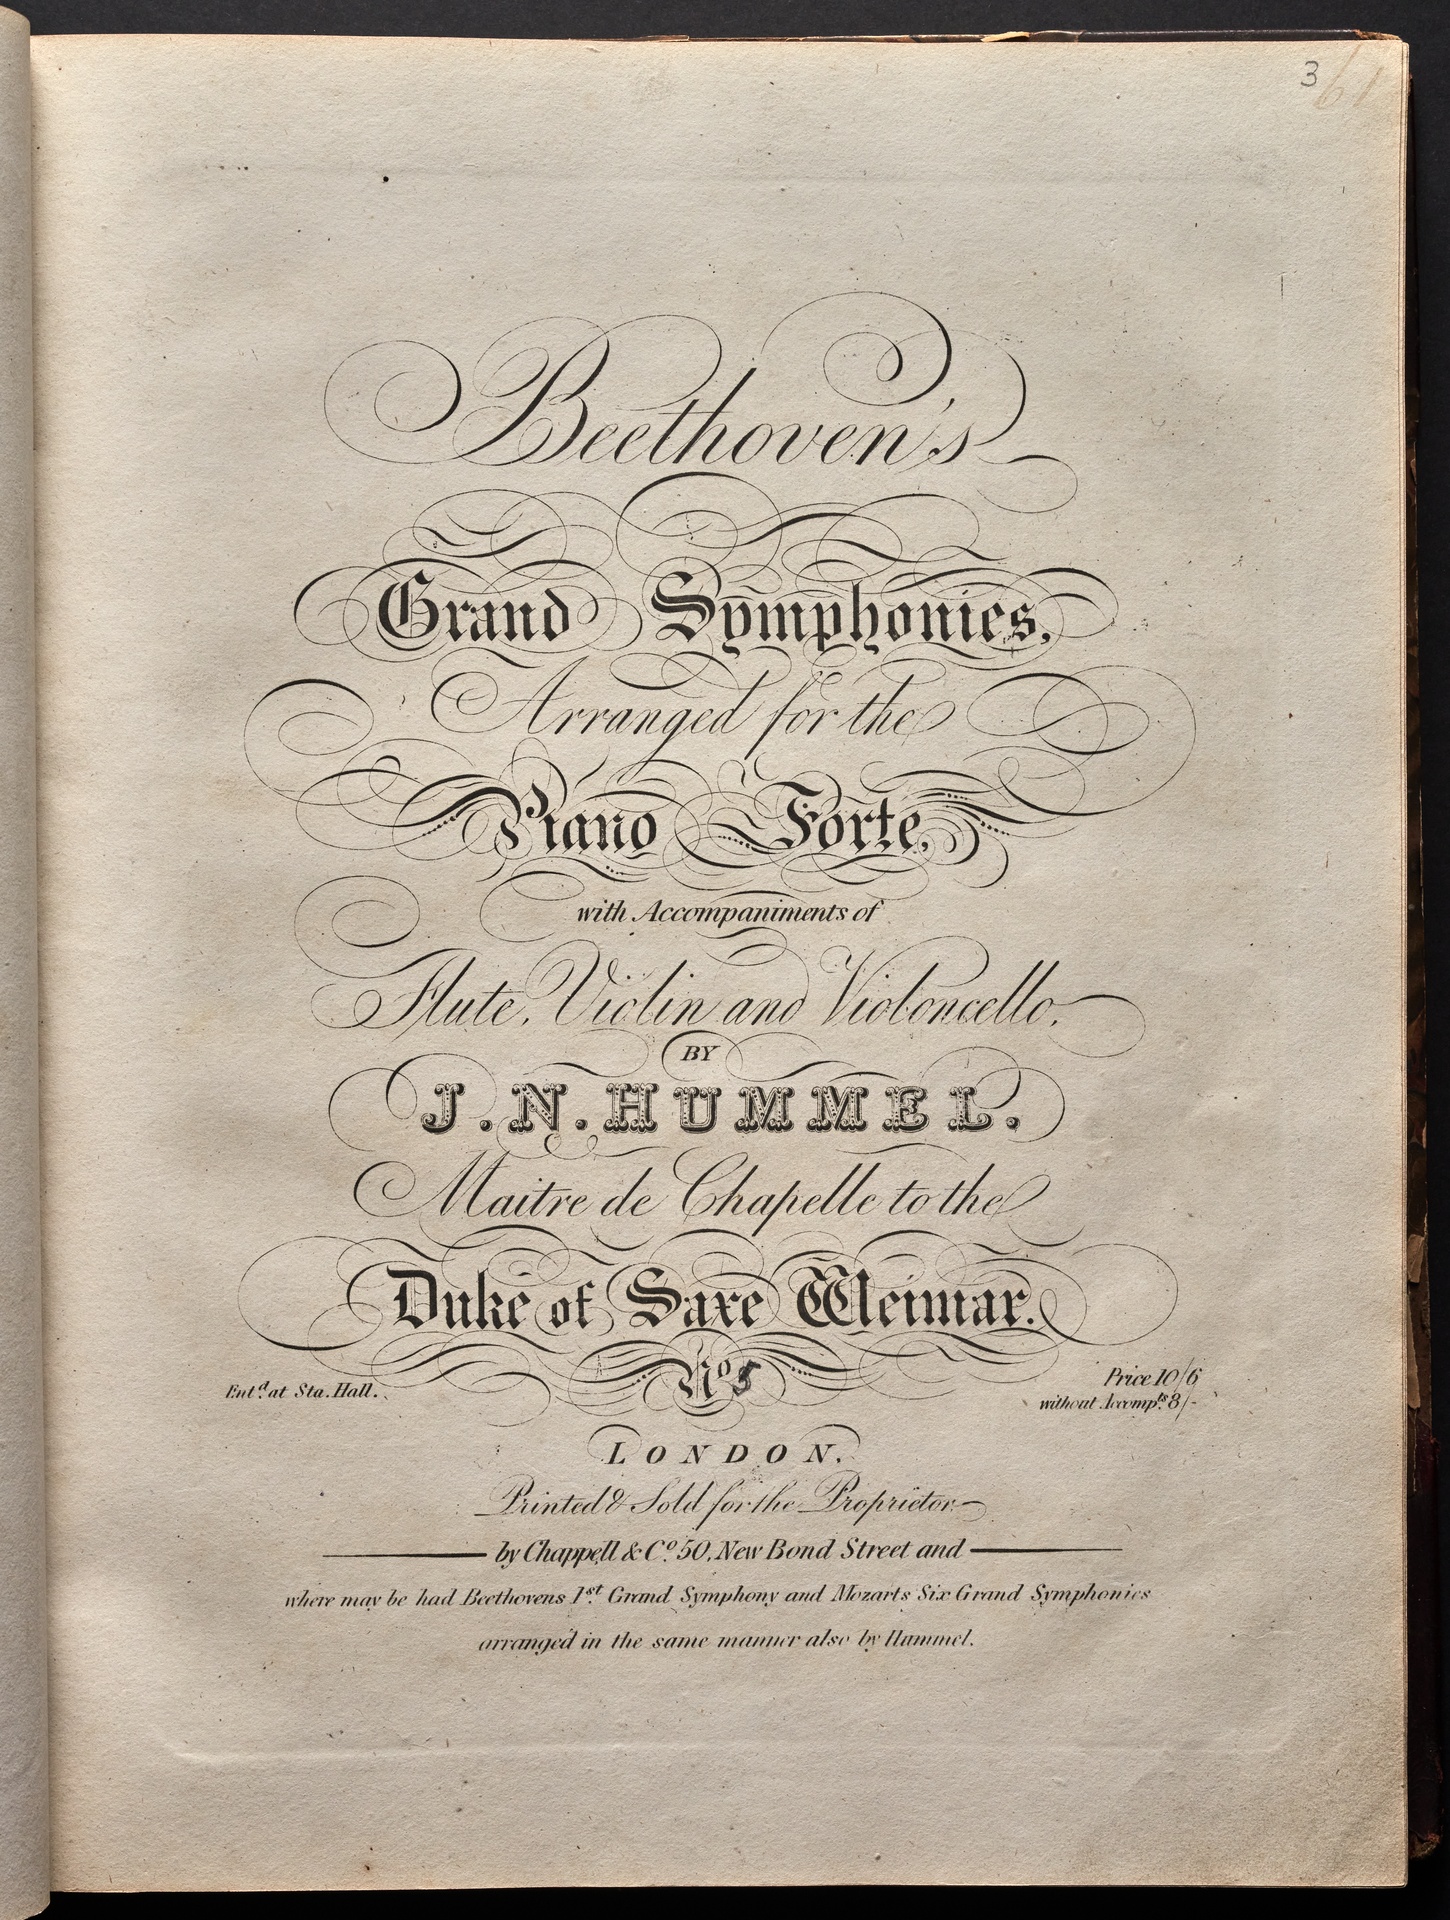 3
61
Beethoven's
Grand Symphonies,
Arranged for the
Piano Forte,
with Accompaniments of
Flute, Violin and Violoncello.
BY
J. N. HUMMEL.
Maitre de Chapelle to the
Duke of Saxe Weimar.
No 5
Entd. at Sta. Hall.
Price 10/6
without Accompts. 8/-
LONDON.
Printed & Sold for the Proprietor
by Chappell & Co. 50, New Bond Street and
where may be had Beethovens 1st. Grand Symphony and Mozarts Six Grand Symphonies
arranged in the same manner also by Hummel.